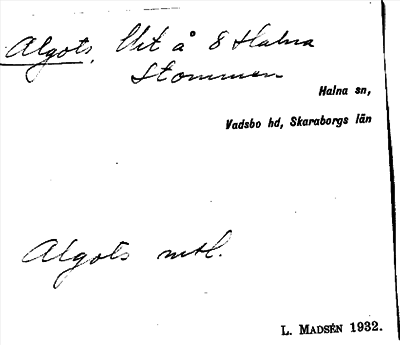 Algots, Utt å 8 Halna
Stommen
Halna sn,
Vadsbo hd, Skaraborgs län
Algots mtl.
L. MADSÉN 1932.